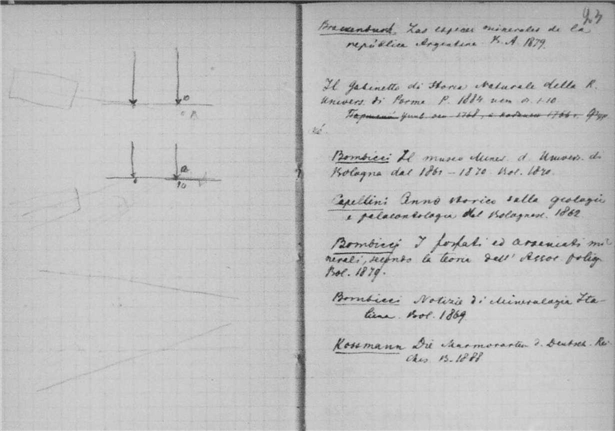 23
Brackenbusch, Las especies minerales de la
república Argentina. B.A. 1879.
Il Gabinetto di Storia Naturale della R.
Univers. di Parma P. 1884.
Bombicci Il museo Miner. d. Univers. di
Bologna dal 1861–1870. Bol. 1870.
Capellini Cenno storico sulla geologia
e palaeontologia del Bolognese. 1862
Bombicci I fosfati ed arseniati mi-
nerali, secondo la teoria dell' Assoc. polig.
Bol. 1879.
Bombicci Notizie di Mineralogia Ita-
liana. Bol. 1869
Kossmann Die Marmorarten d. Deutsch. Rei-
ches. B. 1888